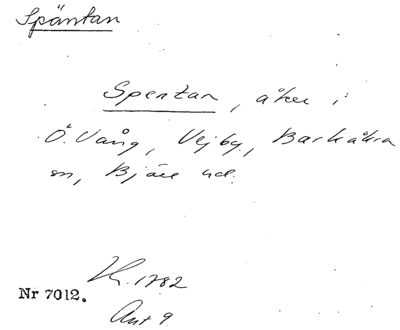 Späntan
Spentan, åker i
Ö. Vång, Vejby, Barkåkra
sn, Bjäre hd.
Kr. 1782
Nr 7012.
Akt 9